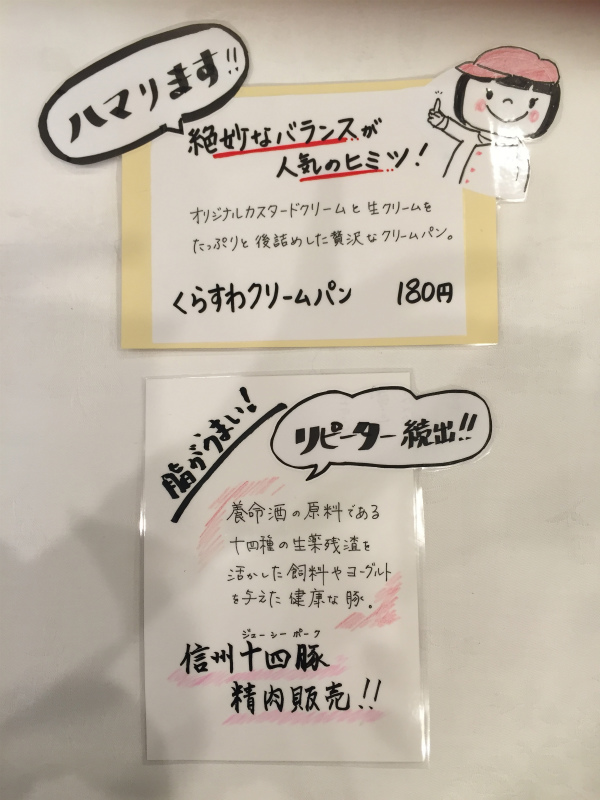 ハマります!!
絶妙なバランスが
人気のヒミツ!
オリジナルカスタードクリームと生クリームを
たっぷりと後詰めした贅沢なクリームパン。
くらすわクリームパン 180円
脂がうまい!
リピーター続出!!
養命酒の原料である
十四種の生薬残渣を
活かした飼料やヨーグルト
を与えた健康な豚。
ジューシーポーク
信州十四豚
精肉販売!!